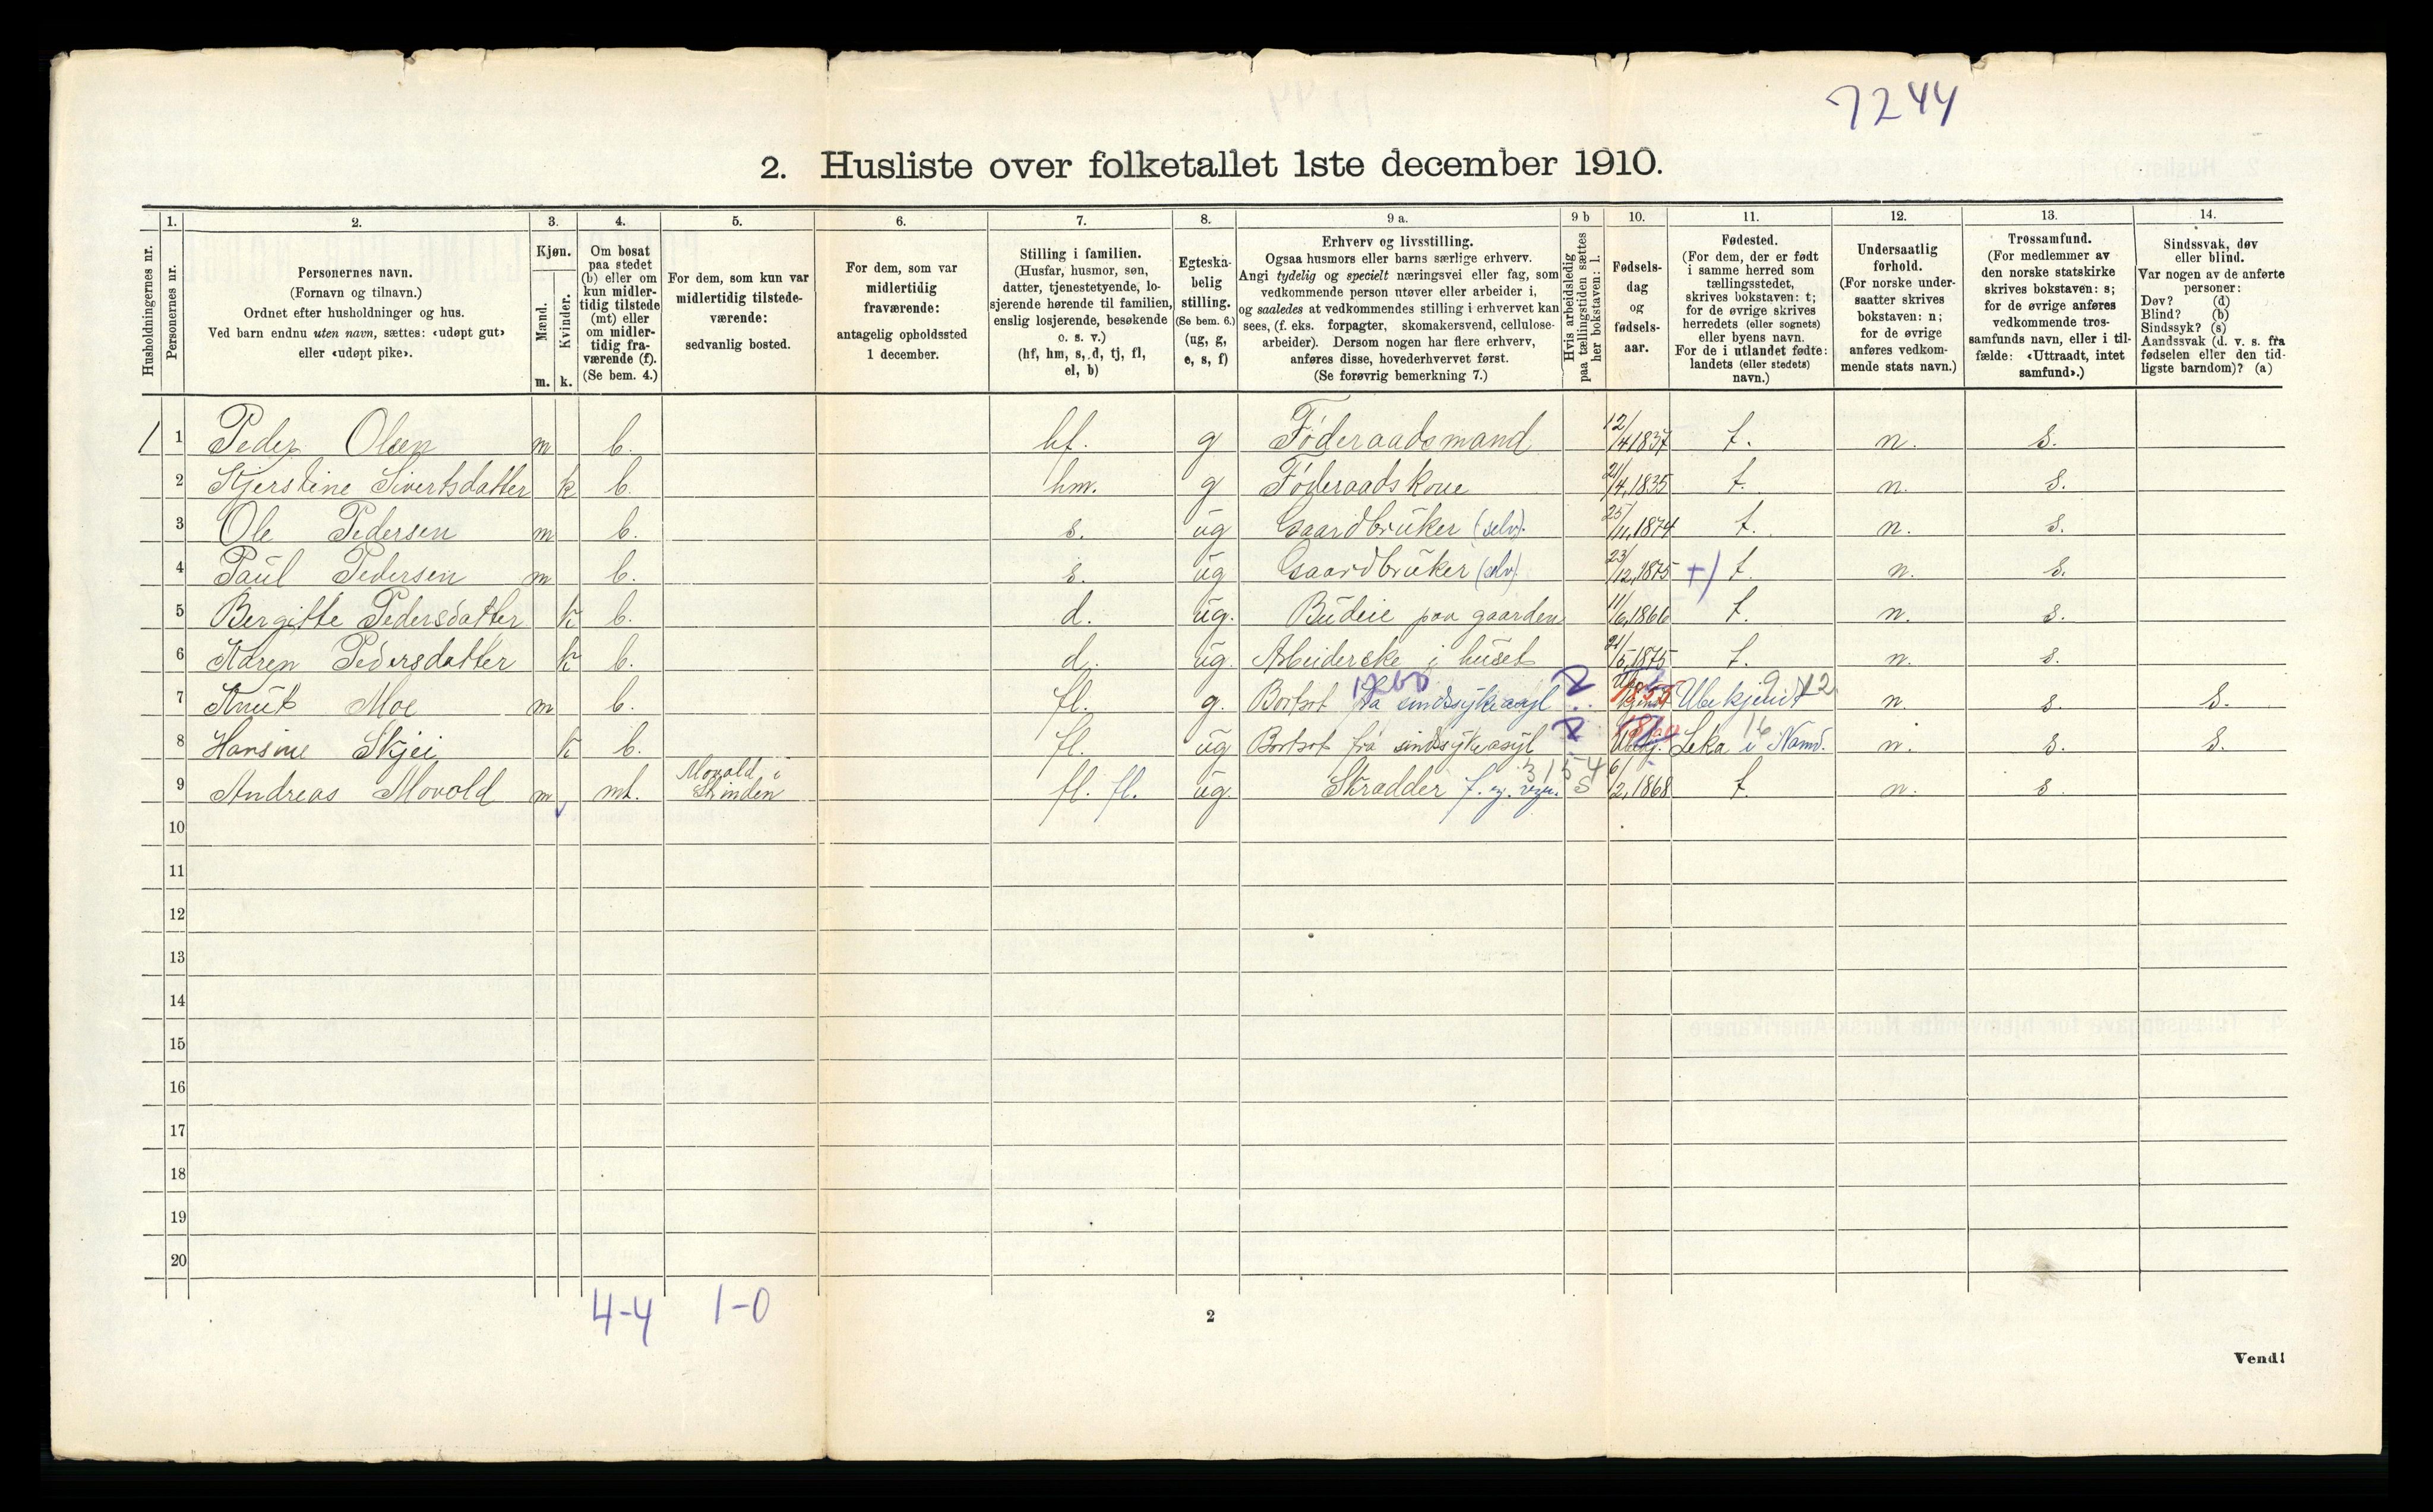 7244
2. Husliste over folketallet 1ste december 1910.
Husholdningernes nr.
1.
Personernes nr.
2.
Personernes navn.
(Fornavn og tilnavn.)
Ordnet efter husholdninger og hus.
Ved barn endnu uten navn, sættes: «udøpt gut»
eller «udøpt pike».
3.
Kjøn.
Mænd.
Kvinder.
m. k.
4.
Om bosat
paa stedet
(b) eller om
kun midler-
tidig tilstede
(mt) eller
om midler-
tidig fra-
værende (f).
(Se bem. 4.)
5.
For dem, som kun var
midlertidig tilstede-
værende:
sedvanlig bosted.
6.
For dem, som var
midlertidig
fraværende:
antagelig opholdssted
1 december.
7.
Stilling i familien.
(Husfar, husmor, søn,
datter, tjenestetyende, lo-
sjerende hørende til familien,
enslig losjerende, besøkende
o. s. v.)
(hf, hm, s, d, tj, fl,
el, b)
8.
Egteska-
belig
stilling.
(Se bem. 6.)
(ug, g,
e, s, f)
9 a.
Erhverv og livsstilling.
Ogsaa husmors eller barns særlige erhverv.
Angi tydelig og specielt næringsvei eller fag, som
vedkommende person utøver eller arbeider i,
og saaledes at vedkommendes stilling i erhvervet kan
sees, (f. eks. forpagter, skomakersvend, cellulose-
arbeider). Dersom nogen har flere erhverv,
anføres disse, hovederhvervet først.
(Se forøvrig bemerkning 7.)
9 b
Hvis arbeidsledig
paa tællingstiden sættes
her bokstaven: l.
10.
Fødsels-
dag
og
fødsels-
aar.
11.
Fødested.
(For dem, der er født
i samme herred som
tællingsstedet,
skrives bokstaven: t;
for de øvrige skrives
herredets (eller sognets)
eller byens navn.
For de i utlandet fødte:
landets (eller stedets)
navn.)
12.
Undersaatlig
forhold.
(For norske under-
saatter skrives
bokstaven: n;
for de øvrige
anføres vedkom-
mende stats navn.)
13.
Trossamfund.
(For medlemmer av
den norske statskirke
skrives bokstaven: s;
for de øvrige anføres
vedkommende tros-
samfunds navn, eller i til-
fælde: «Uttraadt, intet
samfund».)
14.
Sindssvak, døv
eller blind.
Var nogen av de anførte
personer:
Døv? (d)
Blind? (b)
Sindssyk? (s)
Aandssvak (d. v. s. fra
fødselen eller den tid-
ligste barndom)? (a)
1 1 Peder Olsen m b. hf. g Føderaadsmand 12/4 1837 t. n. s.
2 Kjerstine Sivertsdatter k b. hm. g Føderaadskone 21/4 1835 t. n. s.
3 Ole Pedersen m b. s. ug Gaardbruker (selv). 25/11 1874 t. n. s.
4 Paul Pedersen m b. s. ug Gaardbruker (selv) 23/12 1875 +) t. n. s.
5 Bergitte Pedersdatter k b. d. ug. Budeie paa gaarden 11/6 1866 t. n. s.
6 Karen Pedersdatter k b. d. ug. Arbeiderske i huset 21/5 1875 t. n. s.
7 Knut Moe m b. fl. g. Bortsat fra sindssykeasyl Ubekjendt n. s. s.
8 Hansine Skjei k b. fl. ug Bortsat fra sindssykeasyl Ubekj. Leka i Namd. n. s. s.
9 Andreas Movold m mt. Movold i Stinden fl. fl. ug. Skrædder 3154 S 6/2 1868 t. n. s.
10
11
12
13
14
15
16
17
18
19
20
4-4 1-0
2
Vend!